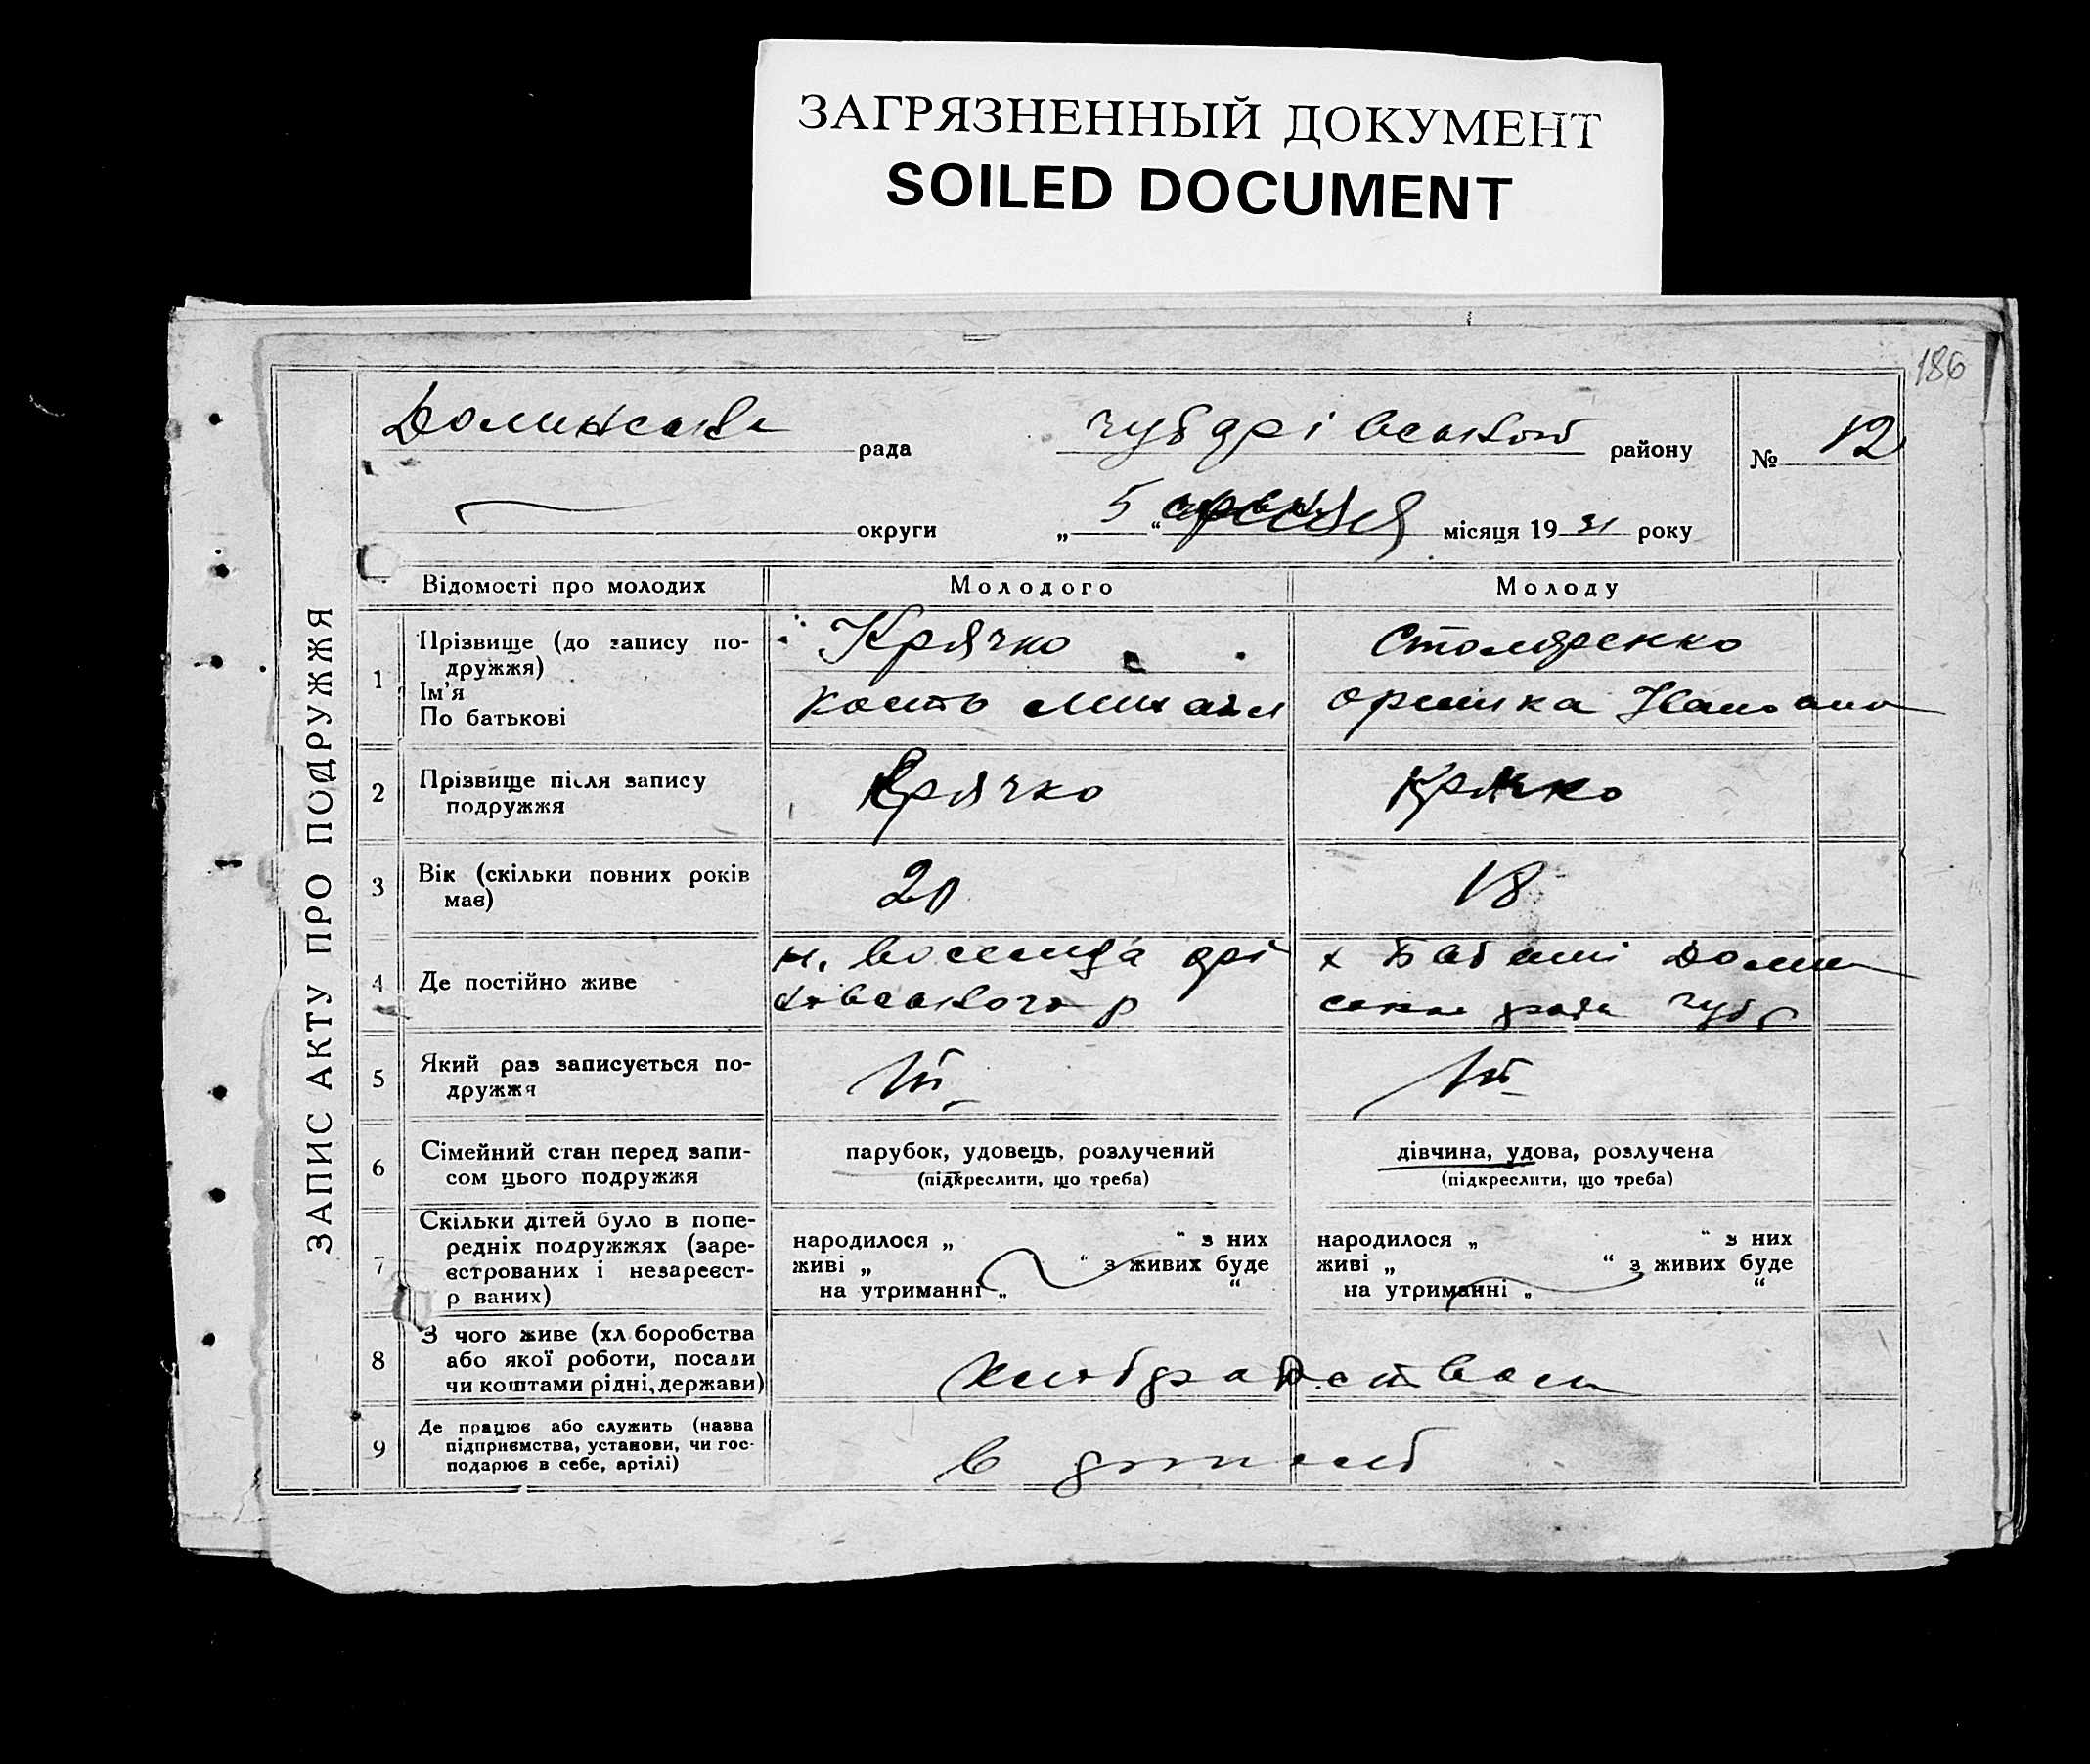 ЗАГРЯЗНЕННЫЙ ДОКУМЕНТ
SOILED DOCUMENT
186
ЗАПИС АКТУ ПРО ПОДРУЖЖЯ
Долинська рада
района № 12
округи
„ 5 “ місяця 19 31 року
Відомості про молодих Молодого Молоду
1 Прізвище (до запису по-
дружжя) Крячко Столяренко
Ім'я
По батькові
Кость Михайл Оришка
2 Прізвище після запису
подружжя Крячко Крячко
3 Вік (скільки повних років
має) 20 18
4 Де постійно живе
5 Який раз записується по-
дружжя
6 Сімейний стан перед запи-
сом цього подружжя
парубок, удовець, розлучений дівчина, удова, розлучена
(підкреслити, що треба) (підкреслити, що треба)
7 Скільки дітей було в попе-
редніх подружжях (заре-
єстрованих і незареєст-
р ваних)
народилося „ “ з них народилося „ “ з них
живі „ “ з живих буде живі „ “ з живих буде
на утриманні „ “ на утриманні „ “
8 З чого живе (хл боробства
або якої роботи, посади
чи коштами рідні, держави)
9 Де працює або служить (назва
підприємства, установи, чи гос-
подарює в себе, артілі)